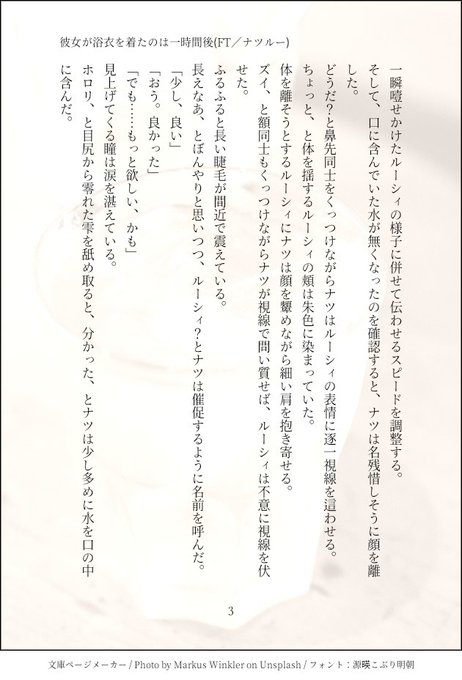 彼女が浴衣を着たのは一時間後(FT／ナツルー)
一瞬噎せかけたルーシィの様子に併せて伝わせるスピードを調整する。
そして、口に含んでいた水が無くなったのを確認すると、ナツは名残惜しそうに顔を離
した。
どうだ？と鼻先同士をくっつけながらナツはルーシィの表情に逐一視線を這わせる。
ちょっと、と体を揺するルーシィの頬は朱色に染まっていた。
体を離そうとするルーシィにナツは顔を顰めながら細い肩を抱き寄せる。
ズイ、と額同士もくっつけながらナツが視線で問い質せば、ルーシィは不意に視線を伏
せた。
ふるふると長い睫毛が間近で震えている。
長えなあ、とぼんやりと思いつつ、ルーシィ？とナツは催促するように名前を呼んだ。
「少し、良い」
「おう。良かった」
「でも……もっと欲しい、かも」
見上げてくる瞳は涙を湛えている。
ホロリ、と目尻から零れた雫を舐め取ると、分かった、とナツは少し多めに水を口の中
に含んだ。
3
文庫ページメーカー / Photo by Markus Winkler on Unsplash / フォント：源暎こぶり明朝